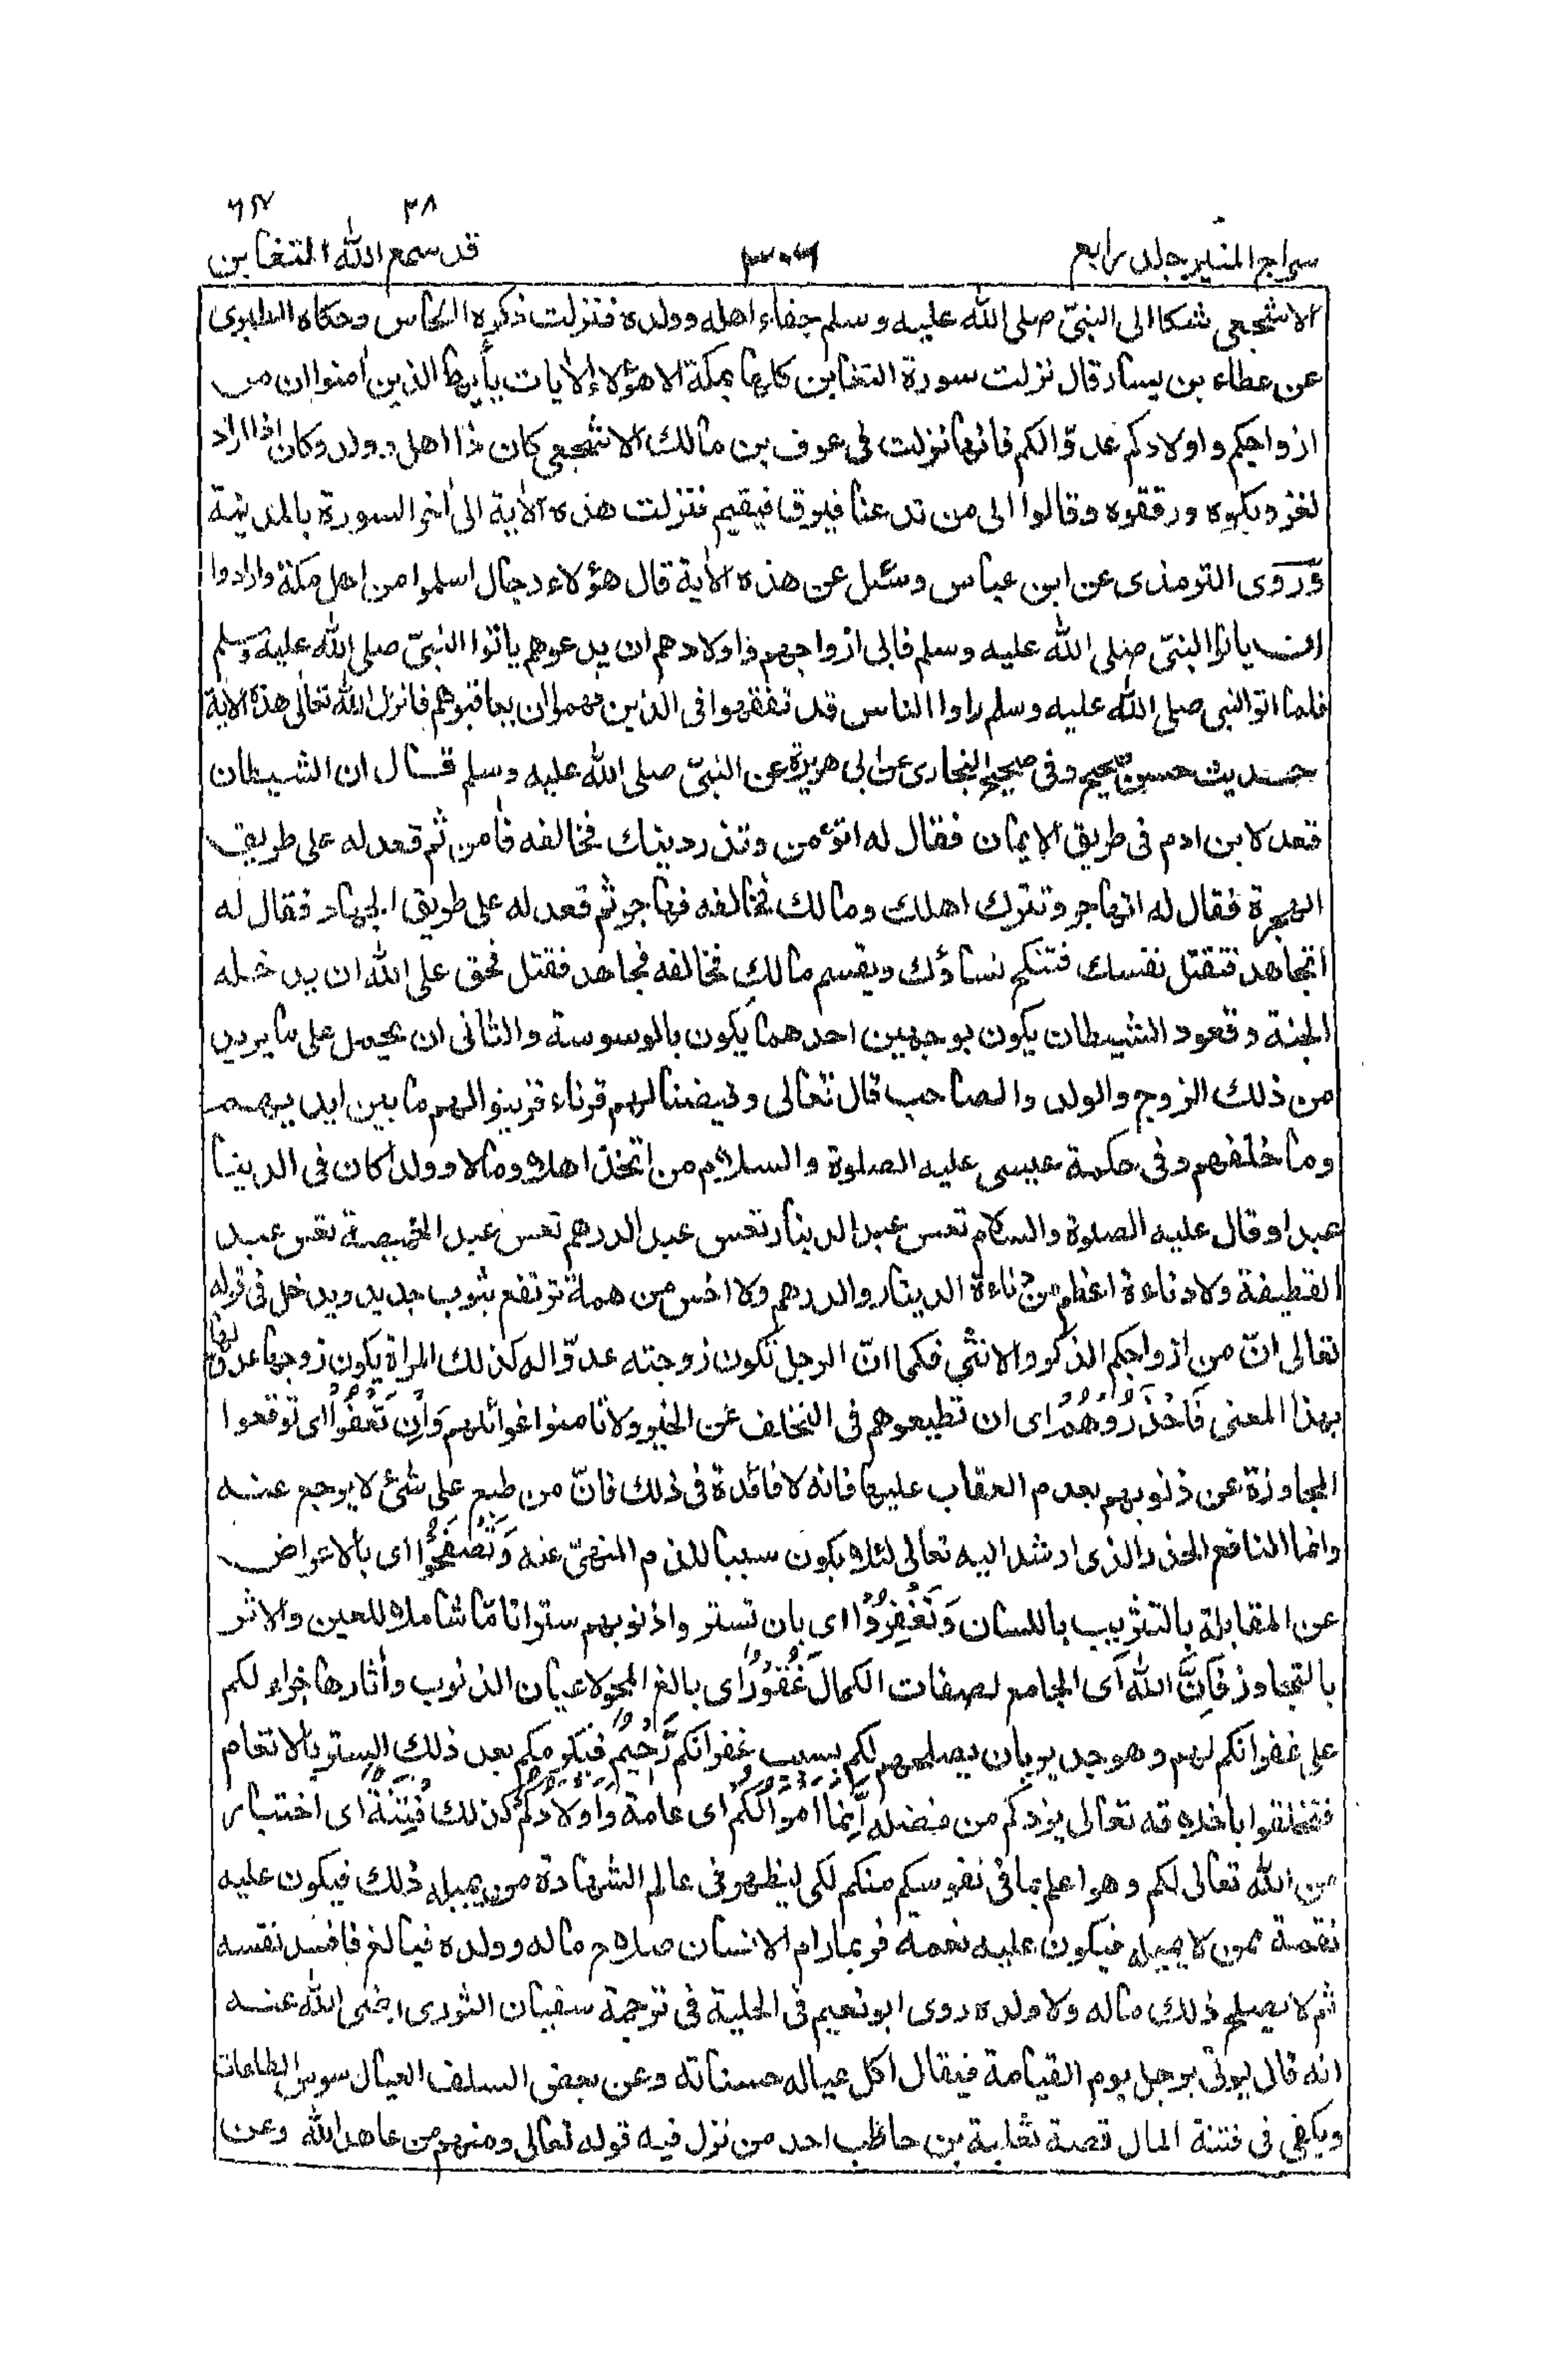 ٢٨ ٦٤
سراج المنير جلد رابع ٣٠٦ قد سمع الله التغابن
الاشجعي شكا الى النبيّ صلى الله عليه وسلم جفاء اهله وولده فنزلت ذكره النحاس وحكاه الطبرى
عن عطاء بن يسار قال نزلت سورة التغابن كلها بمكة الا هؤلاء الأيات يأيها الذين أمنوا ان من
ازواجكم واولادكم عدوّا لكم فانها نزلت فى عوف بن مالك الاشجعى كان ذا اهل وولد وكان اذا اراد
لغزو بكوه ورققوه وقالوا الى من تدعنا فيرق فيقيم فنزلت هذه الأية الى أخر السورة بالمدينة
وّروى الترمذى عن ابن عباس وسئل عن هذه الأية قال هؤلاء رجال اسلموا من اهل مكة وارادوا
ان ياتوا النبيّ صلى الله عليه وسلم فابى ازواجهم واولادهم ان يدعوهم ياتوا النبيّ صلى الله عليه وسلم
فلما اتوا النبي صلى الله عليه وسلم راوا الناس قد تفقهوا فى الدين فهموا ان يعاقبوهم فانزل الله تعالى هذه الأية
حديث حسن صحيح وفى صحيح البخارى عن ابى هريرة عن النبيّ صلى الله عليه وسلم قال ان الشيطان
قعد لابن ادم فى طريق الايمان فقال له اتؤمن وتذر دينك فخالفه فأمن ثم قعد له على طريق
الهجرة فقال له اتهاجر وتترك اهلك ومالك فخالفه فهاجر ثم قعد له على طريق الجهاد فقال له
اتجاهد فتقتل نفسك فتنكح نساؤك ويقسم مالك فخالفه فجاهد فقتل فحق على الله ان يدخله
الجنة وقعود الشيطان يكون بوجهين احدهما يكون بالوسوسة والثانى ان يحمل على ما يريد
من ذلك الزوج والولد والصاحب قال تعالى وقيضنا لهم قرناء فزينوا لهم ما بين ايديهم
وما خلفهم وفى حكمة عيسى عليه الصلوة والسلام من اتخذ اهلا ومالا وولدا كان فى الدنيا
عبدا وقال عليه الصلوة والسلام تعس عبد الدينار تعس عبد الدرهم تعس عبد الخميصة تعس عبد
القطيفة ولا دناءة اعظم من دناءة الدينار والدرهم ولا اخس من همة ترتفع بثوب جديد ويدخل فى قوله
تعالى انّ من ازواجكم الذكر والانثى فكما انّ الرجل تكون زوجته عدوّا له كذلك المراة يكون زوجها عدوّا لها
بهذا المعنى فَاحْذَرُوْهُمْ اى ان تطيعوهم فى التخلف عن الخير ولا تامنوا غوائلهم وَاِنْ تَعْفُوْا اى توقعوا
المجاوزة عن ذنوبهم بعدم العقاب عليها فانه لا فائدة فى ذلك فانّ من طبع على شئ لا يرجع عنه
وانما النافع الحذر الذى ارشد اليه تعالى لئلا يكون سببا للذم المنهىّ عنه وَتَصْفَحُوْا اى بالاعراض
عن المقابلة بالتثريب باللسان وَتَغْفِرُوْا اى بان تستروا ذنوبهم سترا تامّا شاملا للعين والاثر
بالتجاوز فَاِنَّ اللّٰهَ اى الجامع لصفات الكمال غَفُوْرٌ اى بالغ المحو لاعيان الذنوب وأثارها جزاء لكم
على غفرانكم لهم وهو جدير بان يصلحهم لكم بسبب غفرانكم رَّحِيْمٌ فيكرمكم بعد ذلك الستر بالانعام
فتخلقوا باخلاقه تعالى يزدكم من فضله اِنَّمَا اَمْوَالُكُمْ اى عامة وَاَوْلَادُكُمْ كذلك فِتْنَةٌ اى اختبار
من الله تعالى لكم وهو اعلم بما فى نفوسكم منكم لكى ليظهر فى عالم الشهادة من يميله ذلك فيكون عليه
نقمة ممن لا يميله فيكون عليه نعمة فربما رام الانسان صلاح ماله وولده فبالغ فافسد نفسه
ثم لا يصلح ذلك ماله ولا ولده روى ابو نعيم فى الحلية فى ترجمة سفيان الثورى رضى الله عنه
انه قال يوتى برجل يوم القيامة فيقال اكل عياله حسناته وعن بعض السلف العيال سوس الطاعات
ويكفى فى فتنة المال قصة ثعلبة بن حاطب احد من نزل فيه قوله تعالى ومنهم من عاهد الله وعن